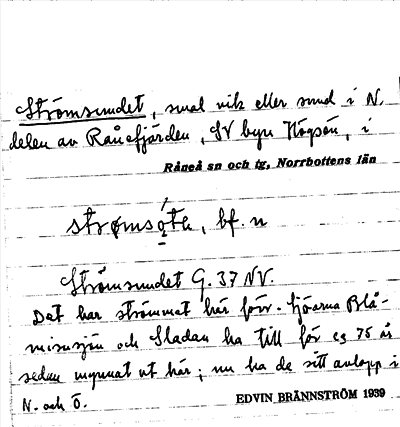 Strömsundet, smal vik eller sund i N.
delen av Rånefjärden, SV byn Högsön, i
Råneå sn och tg, Norrbottens län
bf. n
Strömsundet G. 37 NV.
Det har strömmat här förr. Sjöarna Blå-
misusjön och Sladan ha till för c:a 75 år
sedan mynnat ut här; nu ha de sitt avlopp i
N. och Ö.
EDVIN BRÄNNSTRÖM 1939